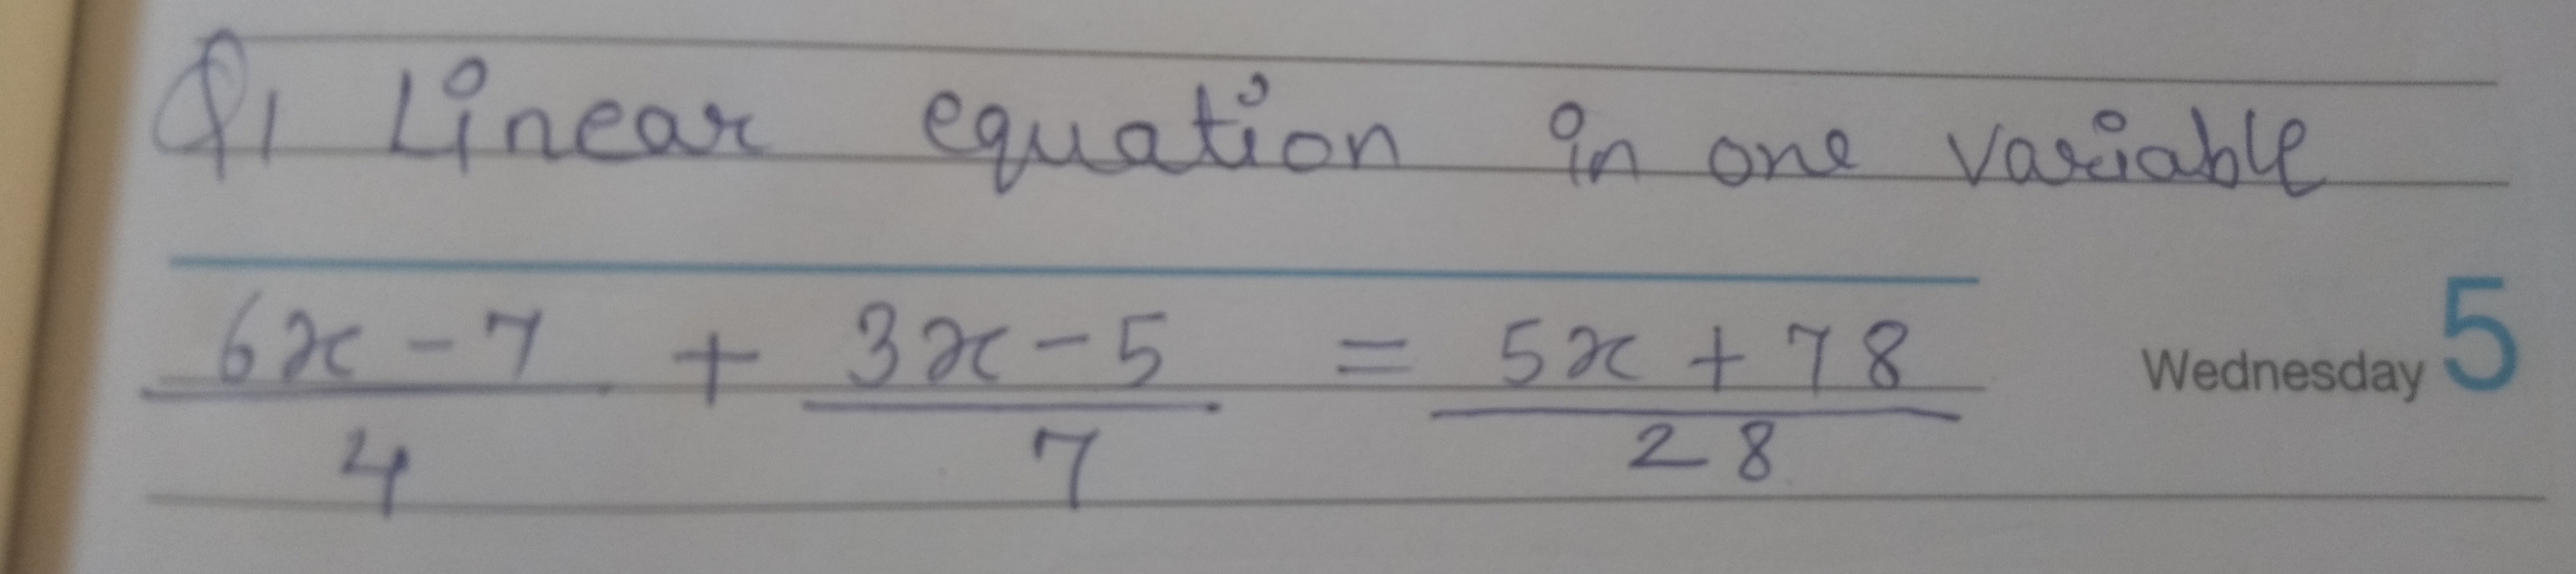 Q1 Linear equation in one variable
6x - 7 / 4 + 3x - 5 / 7 = 5x + 78 / 28
Wednesday 5